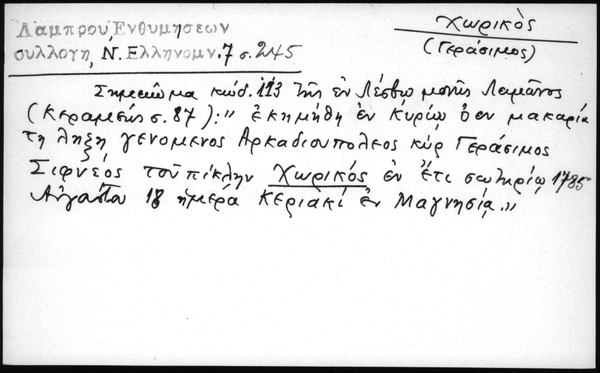 Λάμπρου, Ἐνθυμήσεων
συλλογη, Ν. Ελληνομν. 7 σ. 245
Χωρικὸς
(Γεράσιμος)
Σημείωμα κώδ. 113 τῆς ἐν Λέσβῳ μονῆς Λειμῶνος
(Κεραμεὺς σ. 87): „ ἐκημήθη ἐν Κυρίῳ ὁ ἐν μακαρία
τη ληξη γενομενος Αρκαδιουπολεος κύρ Γεράσιμος
Σιφνεός τοὐπίκλην Χωρικός ἐν ἔτι σωτηρίῳ 1785
Αὐγούστου 18 ἡμερά κεριακί ἐν Μαγνησίᾳ.„